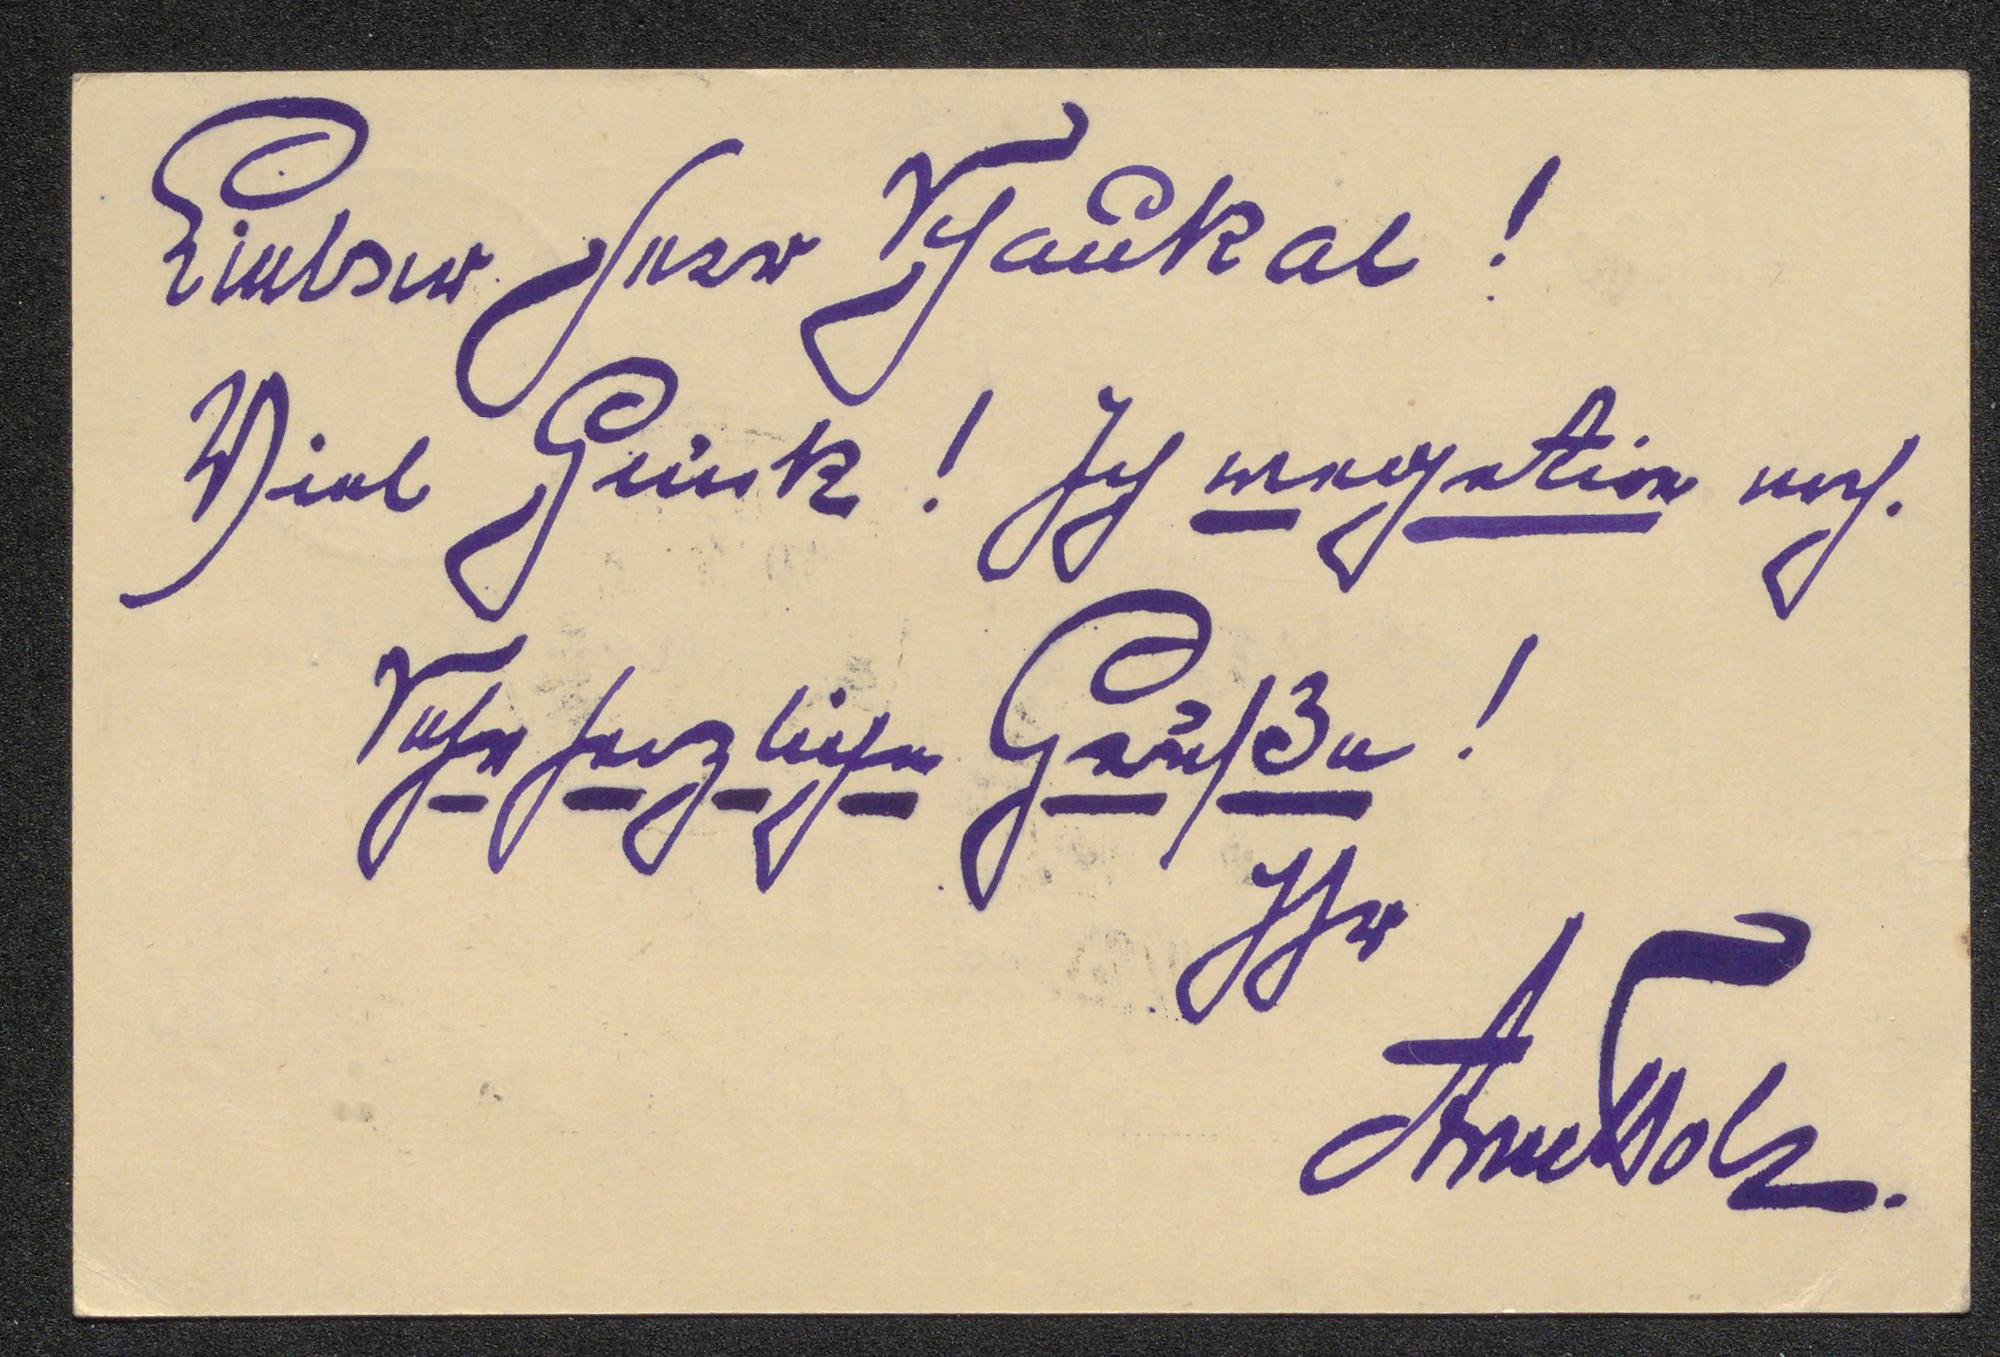 Lieber Herr Schaukal!
Viel Glück! Ich vegetire noch.
Sehr herzliche Grüße!
Ihr
Arno Holz.